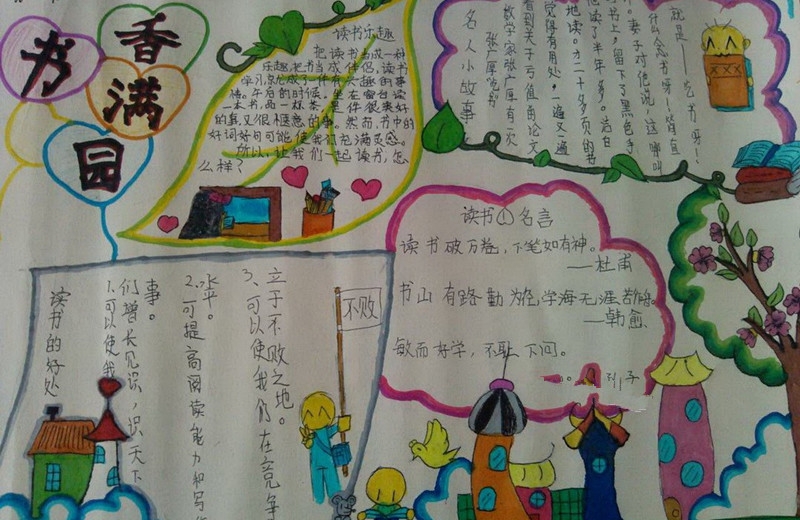 书
香
满
园
读书乐趣
把读书当成一种
乐趣,把书当成伴侣,读书
就成了一件有乐趣的事
情。午后的时候,坐在窗台读
一本书,品一杯茶,是件很美好
的事,又很惬意的事。然而,书中的
好词好句可能使我们充满灵感。
所以,让我们一起读书,怎
么样?
名人小故事
张广厚吃书
数学家张广厚有一次
看到关于亏值的论文
觉得有用处,一遍又一遍
地读。才二十多页的书
他读了半年多。洁白
书上,留下了黑色手
。妻子对他说:这哪叫
什么念书呀!简直
就是——吃书呀!
读书的好处
1.可以使我
们增长见识,识天下
事。
2.可提高阅读能力和写
水平。
3、可以使我们在竞争
立于不败之地。
不败
读书名言
读书破万卷,下笔如有神。
——杜甫
书山有路勤为径,学海无涯苦作舟。
——韩愈
敏而好学,不耻下问。
孔子